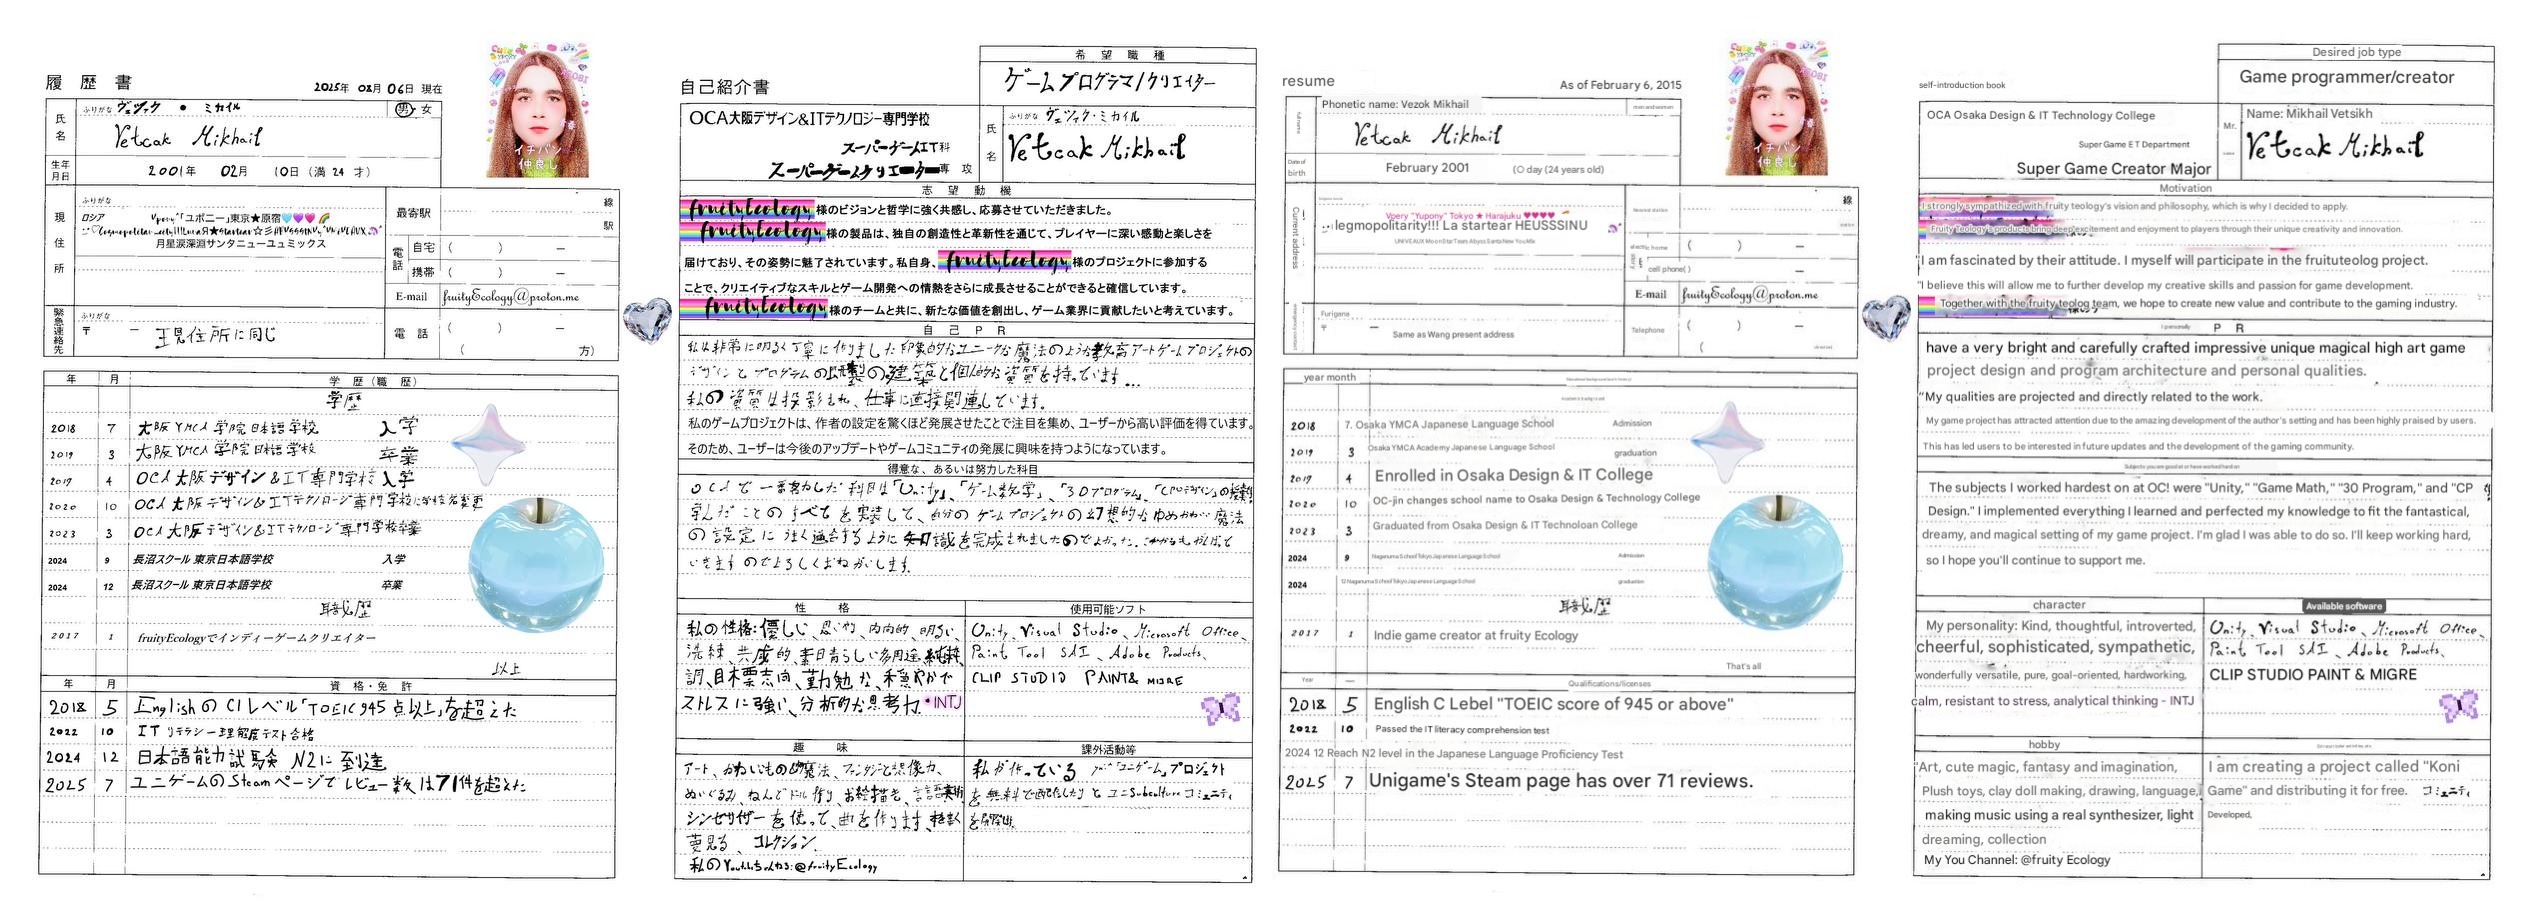 履歴書
2025年 08月 06日 現在
ふりがな ヴェツァク ・ ミカイル
男 女
氏名
Vetcak Mikhail
生年月日
2001年 02月 10日 (満 24 才)
CUTE
イチバン
仲良し
ふりがな
現住所
ロシア
「ユポニー」東京★原宿🩵💜💗🌈
月星涙深淵サンタニューユュミックス
最寄駅
線
駅
電話
自宅 ( ) −
携帯 ( ) −
E-mail fruityEcology@proton.me
緊急連絡先
ふりがな
〒 −
現住所に同じ
電話 ( ) −
( 方)
年 月 学歴(職歴)
学歴
2018 7 大阪YMCA学院日本語学校 入学
2019 3 大阪YMCA学院日本語学校 卒業
2019 4 OCA大阪デザイン&IT専門学校 入学
2020 10 OCA大阪デザイン&ITテクノロジー専門学校に学校名変更
2023 3 OCA大阪デザイン&ITテクノロジー専門学校卒業
2024 9 長沼スクール 東京日本語学校 入学
2024 12 長沼スクール 東京日本語学校 卒業
職歴
2017 1 fruityEcologyでインディーゲームクリエイター
以上
年 月 資格・免許
2018 5 EnglishのC1レベル「TOEIC945点以上」を超えた
2022 10 ITリテラシー理解度テスト合格
2024 12 日本語能力試験 N2に到達
2025 7 ユニゲームのSteamページでレビュー数は71件を超えた
自己紹介書
希望職種
ゲームプログラマ/クリエイター
OCA大阪デザイン&ITテクノロジー専門学校
スーパーゲームIT科
スーパーゲームクリエーター専攻
氏名
ふりがな ヴェツァク・ミカイル
Vetcak Mikhail
志望動機
fruityEcology様のビジョンと哲学に強く共感し、応募させていただきました。
fruityEcology様の製品は、独自の創造性と革新性を通じて、プレイヤーに深い感動と楽しさを
届けており、その姿勢に魅了されています。私自身、fruityEcology様のプロジェクトに参加する
ことで、クリエイティブなスキルとゲーム開発への情熱をさらに成長させることができると確信しています。
fruityEcology様のチームと共に、新たな価値を創出し、ゲーム業界に貢献したいと考えています。
自己PR
私は非常に明るく丁寧に作りました印象的なユニークな魔法のような教高アートゲームプロジェクトの
デザインとプログラムの 建築と個人的な資質を持っています...
私の資質は投影され、仕事に直接関連しています。
私のゲームプロジェクトは、作者の設定を驚くほど発展させたことで注目を集め、ユーザーから高い評価を得ています。
そのため、ユーザーは今後のアップデートやゲームコミュニティの発展に興味を持つようになっています。
得意な、あるいは努力した科目
OCAで一番努力した科目は「Unity」、「ゲーム数学」、「3Dプログラム」、「CPUデザイン」の授業
学んだことのすべてを実装して、自分のゲームプロジェクトの幻想的なゆめかわいい魔法
の設定にうまく適合するように知識を完成されましたのでよかった。これからもがんばって
いきますのでよろしくおねがいします。
性格
使用可能ソフト
私の性格:優しい、思いやり、内向的、明るい、
洗練、共感的、素晴らしい多用途、純粋、
調、目標志向、勤勉な、穏やかで
ストレスに強い、分析的な思考力・INTJ
Unity、Visual Studio、Microsoft Office、
Paint Tool SAI、Adobe Products、
CLIP STUDIO PAINT& MIGRE
趣味
課外活動等
アート、かわいいもの魔法、ファンタジーと想像力、
ぬいぐるみ、ねんどドル作り、お絵描き、言語
シンセサイザーを使って、曲を作ります、
夢見る、コレクション。
私のYoutubeちゃんねる:@fruityEcology
私が作っている「ユニゲーム」プロジェクト
を無料で配信したり とユニSubculture コミュニティ
を展開。
resume
As of February 6, 2015
Phonetic name: Vezok Mikhail
full name
Vetcak Mikhail
Date of birth
February 2001 (O day (24 years old)
CUTE
イチバン
仲良し
Current address
Vpery "Yupony" Tokyo ★ Harajuku ♥♥♥♥
legmopolitarity!!! La startear HEUSSSINU
UNIVEAUX Moon Star Tears Abyss Santa New You Mix
線
cell phone( ) −
E-mail fruityEcology@proton.me
Furigana
〒 −
Same as Wang present address
Telephone ( ) −
(
year month
2018 7. Osaka YMCA Japanese Language School Admission
2019 3 Osaka YMCA Academy Japanese Language School graduation
2019 4 Enrolled in Osaka Design & IT College
2020 10 OC-jin changes school name to Osaka Design & Technology College
2023 3 Graduated from Osaka Design & IT Technoloan College
2024 9 Naganuma School Tokyo Japanese Language School Admission
2024 12 Naganuma School Tokyo Japanese Language School graduation
職歴
2017 1 Indie game creator at fruity Ecology
That's all
Year Qualifications/licenses
2018 5 English C Lebel "TOEIC score of 945 or above"
2022 10 Passed the IT literacy comprehension test
2024 12 Reach N2 level in the Japanese Language Proficiency Test
2025 7 Unigame's Steam page has over 71 reviews.
self-introduction book
Desired job type
Game programmer/creator
OCA Osaka Design & IT Technology College
Super Game E T Department
Super Game Creator Major
Mr.
Name: Mikhail Vetsikh
Vetcak Mikhail
Motivation
I strongly sympathized with fruity teology's vision and philosophy, which is why I decided to apply.
Fruity Teology's products bring deep excitement and enjoyment to players through their unique creativity and innovation.
I am fascinated by their attitude. I myself will participate in the fruituteolog project.
"I believe this will allow me to further develop my creative skills and passion for game development.
Together with the fruity teolog team, we hope to create new value and contribute to the gaming industry.
I personally P R
have a very bright and carefully crafted impressive unique magical high art game
project design and program architecture and personal qualities.
"My qualities are projected and directly related to the work.
My game project has attracted attention due to the amazing development of the author's setting and has been highly praised by users.
This has led users to be interested in future updates and the development of the gaming community.
Subjects you are good at or have worked hard on
The subjects I worked hardest on at OC! were "Unity," "Game Math," "30 Program," and "CP
Design." I implemented everything I learned and perfected my knowledge to fit the fantastical,
dreamy, and magical setting of my game project. I'm glad I was able to do so. I'll keep working hard,
so I hope you'll continue to support me.
character
Available software
My personality: Kind, thoughtful, introverted,
cheerful, sophisticated, sympathetic,
wonderfully versatile, pure, goal-oriented, hardworking,
calm, resistant to stress, analytical thinking - INTJ
Unity、Visual Studio、Microsoft Office、
Paint Tool SAI、Adobe Products、
CLIP STUDIO PAINT & MIGRE
hobby
"Art, cute magic, fantasy and imagination,
Plush toys, clay doll making, drawing, language,
making music using a real synthesizer, light
dreaming, collection
My You Channel: @fruity Ecology
I am creating a project called "Koni
Game" and distributing it for free. コミュニティ
Developed,